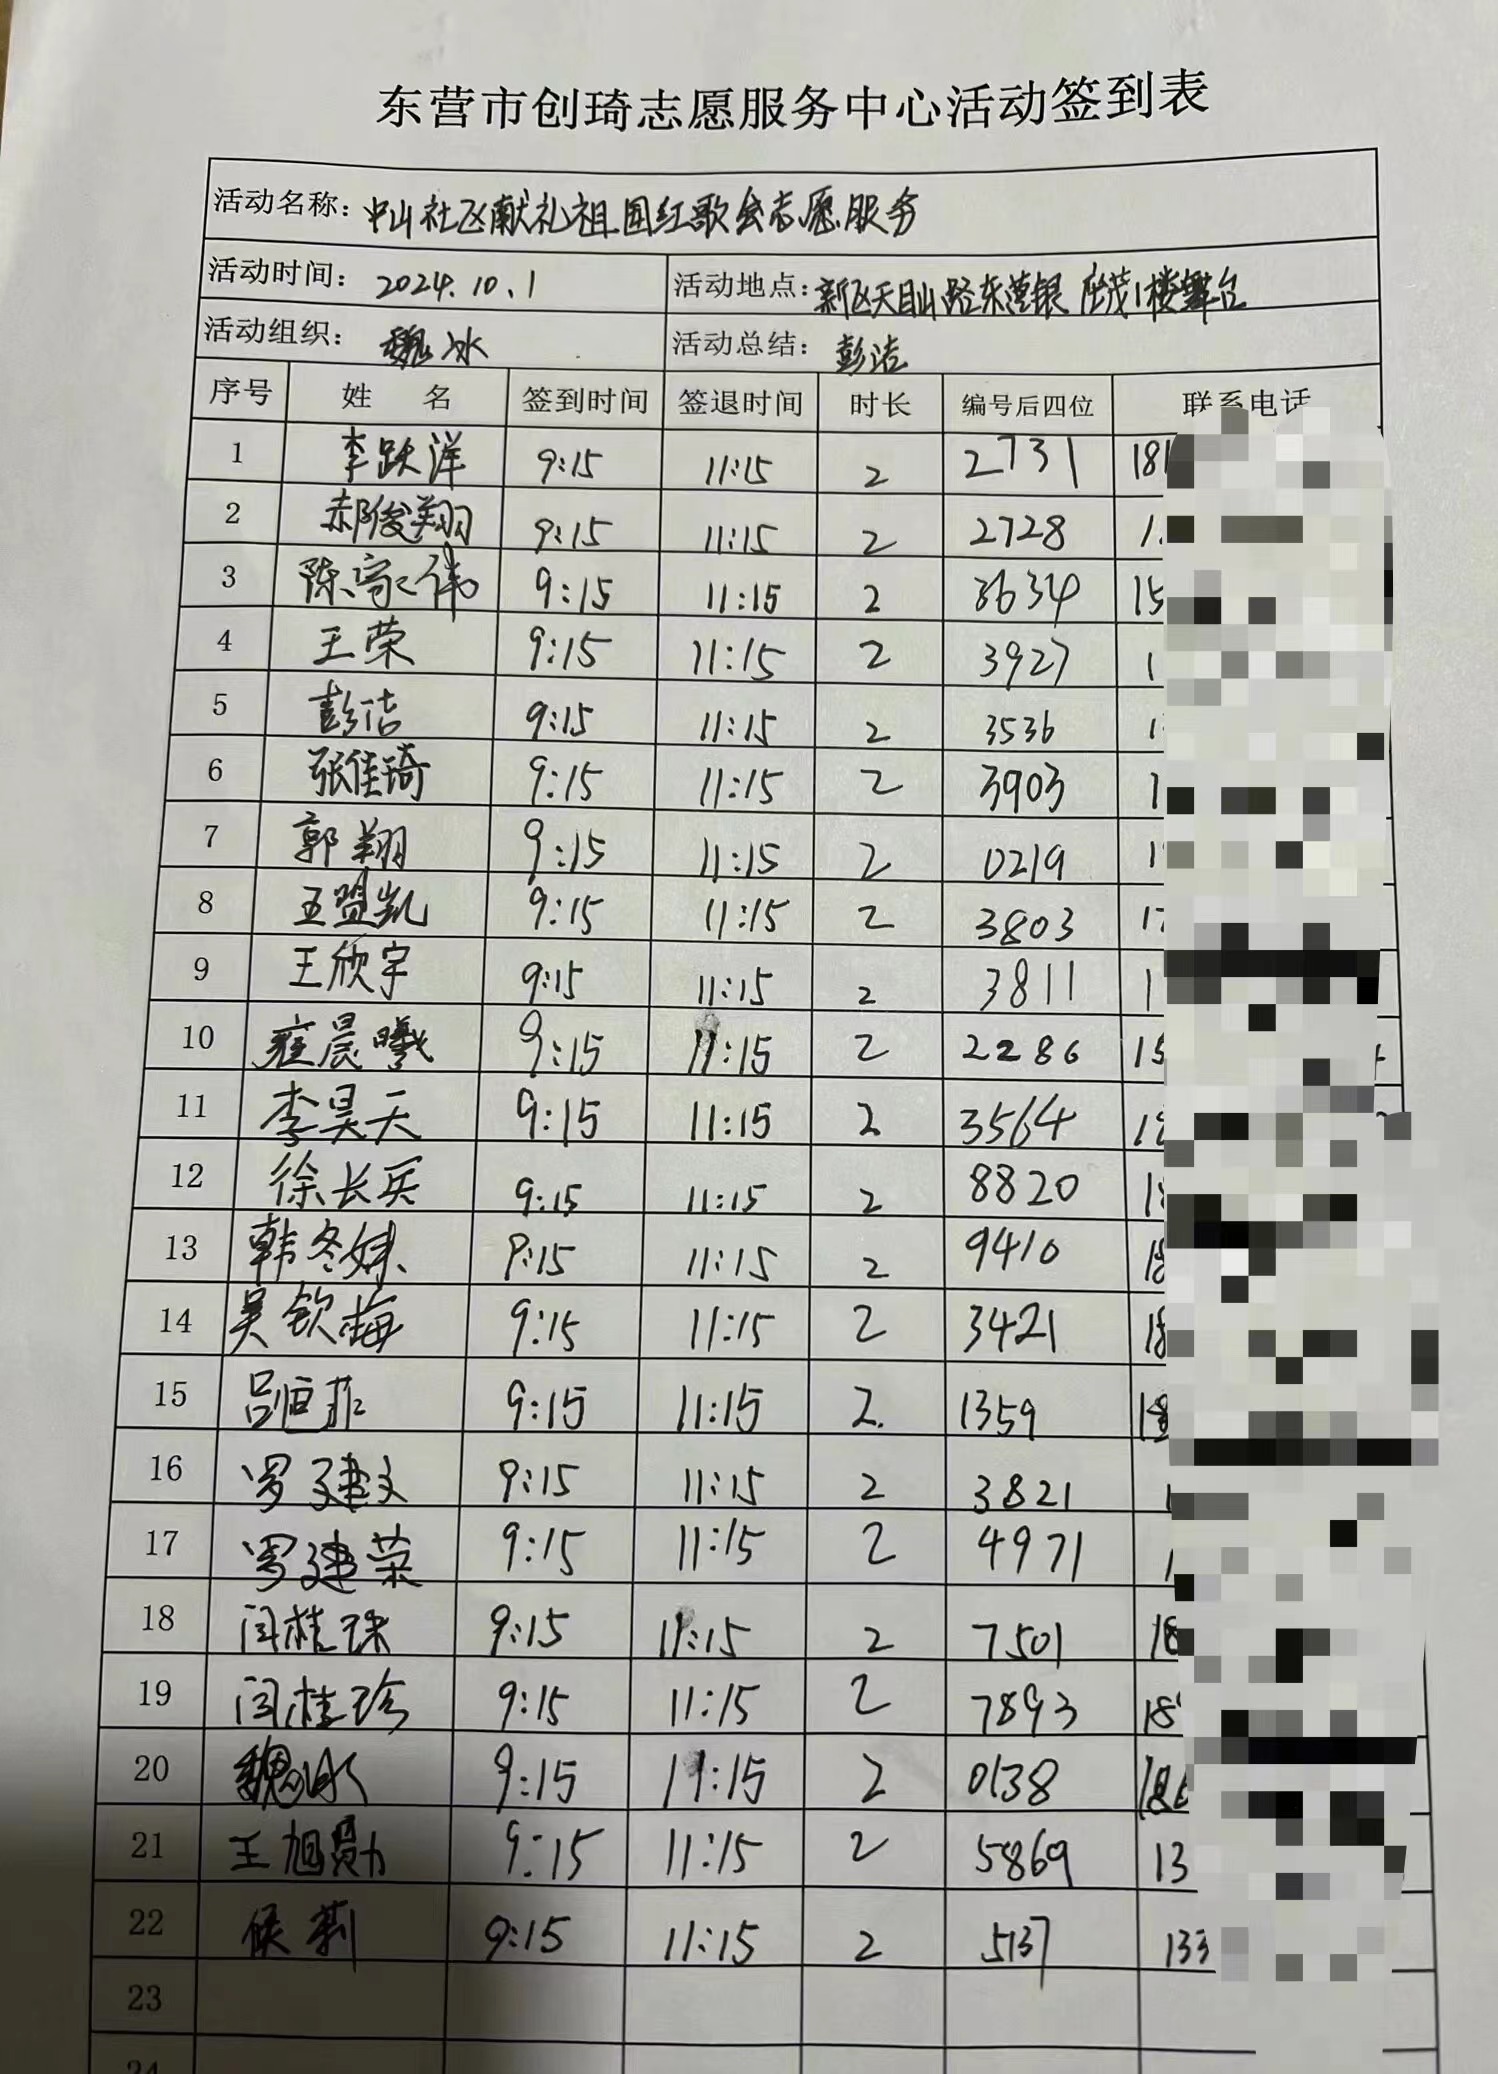 东营市创琦志愿服务中心活动签到表
活动名称：中山社区献礼祖国红歌会志愿服务
活动时间：2024.10.1 活动地点：新区天目山路东澳银座茂1楼舞台
活动组织：魏冰 活动总结：彭洁
序号 姓 名 签到时间 签退时间 时长 编号后四位 联系电话
1 李跃洋 9:15 11:15 2 2731 181
2 郝俊翔 9:15 11:15 2 2728 1
3 陈家伟 9:15 11:15 2 3634 15
4 王荣 9:15 11:15 2 3927 1
5 彭洁 9:15 11:15 2 3536 1
6 张佳琦 9:15 11:15 2 3903 1
7 郭翔 9:15 11:15 2 0219 1
8 王盟凯 9:15 11:15 2 3803 17
9 王欣宇 9:15 11:15 2 3811 1
10 雍晨曦 9:15 11:15 2 2286 15
11 李昊天 9:15 11:15 2 3564 1
12 徐长兵 9:15 11:15 2 8820 1
13 韩冬妹 9:15 11:15 2 9410 18
14 吴钦梅 9:15 11:15 2 3421 18
15 吕恒菲 9:15 11:15 2. 1359 18
16 罗建文 9:15 11:15 2 3821 1
17 罗建荣 9:15 11:15 2 4971 1
18 闫桂珠 9:15 11:15 2 7501 18
19 闫桂珍 9:15 11:15 2 7893 18
20 魏冰 9:15 11:15 2 0138 186
21 王旭勋 9:15 11:15 2 5869 13
22 侯莉 9:15 11:15 2 5137 133
23
24